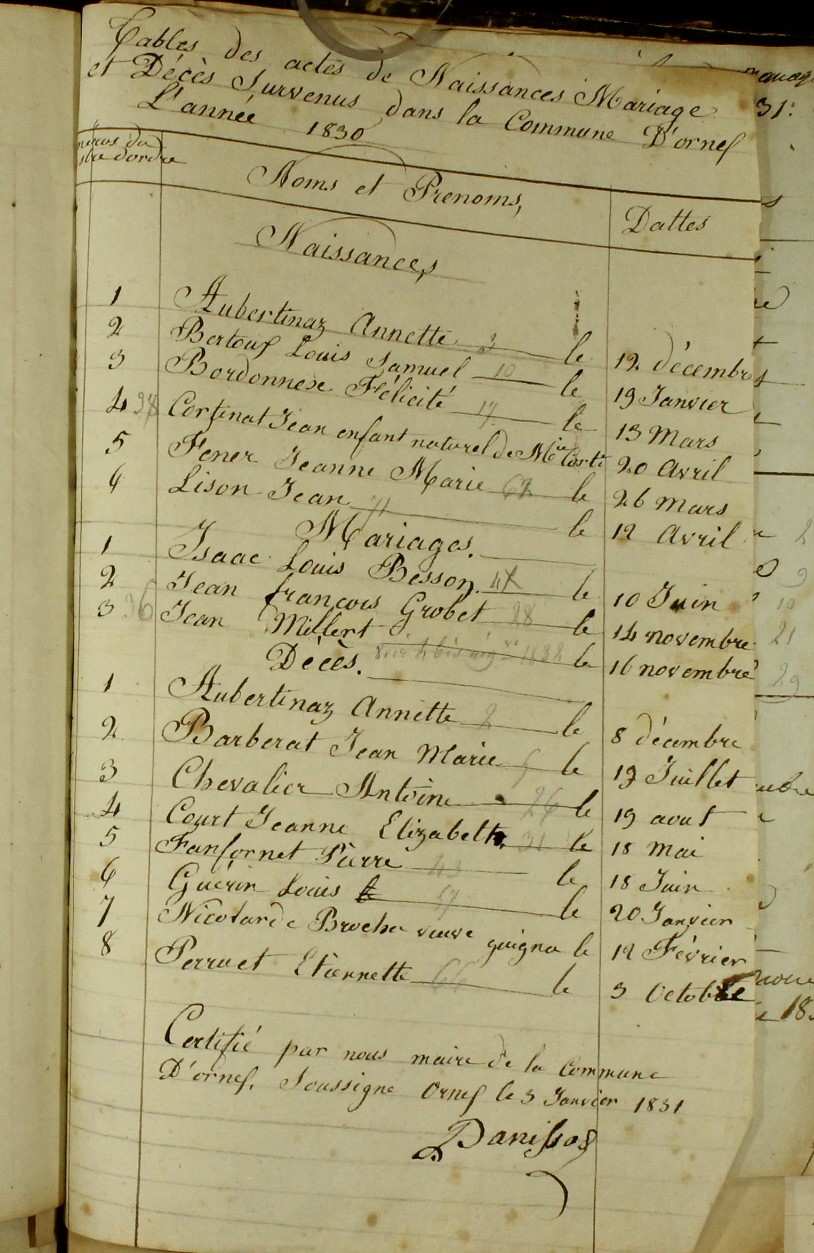 Tables des actes de Naissances Mariage
et Décès Survenus dans la Commune D'ornex
L'année 1830
Noms et Prenoms,
Dattes
Naissances
1 Aubertinaz Annette 3 le 12 décembre
2 Bertouf Louis Samuel 10 le 19 Janvier
3 Bordonnexe Félicité 17 le 13 Mars
4 Cortinat Jean enfant naturel de Mie Corti 20 Avril
5 Fener Jeanne Marie 62 le 26 Mars
6 Lison Jean 71 le 12 Avril
Mariages.
1 Isaac Louis Besson le 10 Juin
2 Jean françois Grobet 28 le 14 novembre
3 36 Jean Millert le 16 novembre
Décès.
1 Aubertinaz Annette 2 le 8 décembre
2 Barberat Jean Marie 5 le 19 Juillet
3 Chevalier Antoine 26 le 19 aout
4 Court Jeanne Elizabeth 31 le 18 Mai
5 Fanfornet Pierre 43 le 18 Juin
6 Guérin Louis 57 le 20 Janvier
7 Nicolarde Broche veuve guigna le 12 Février
8 Perruet Etiennette 66 le 3 Octobre
Certifié par nous maire de la Commune
D'ornex. Soussigne Ornex le 3 Janvier 1831